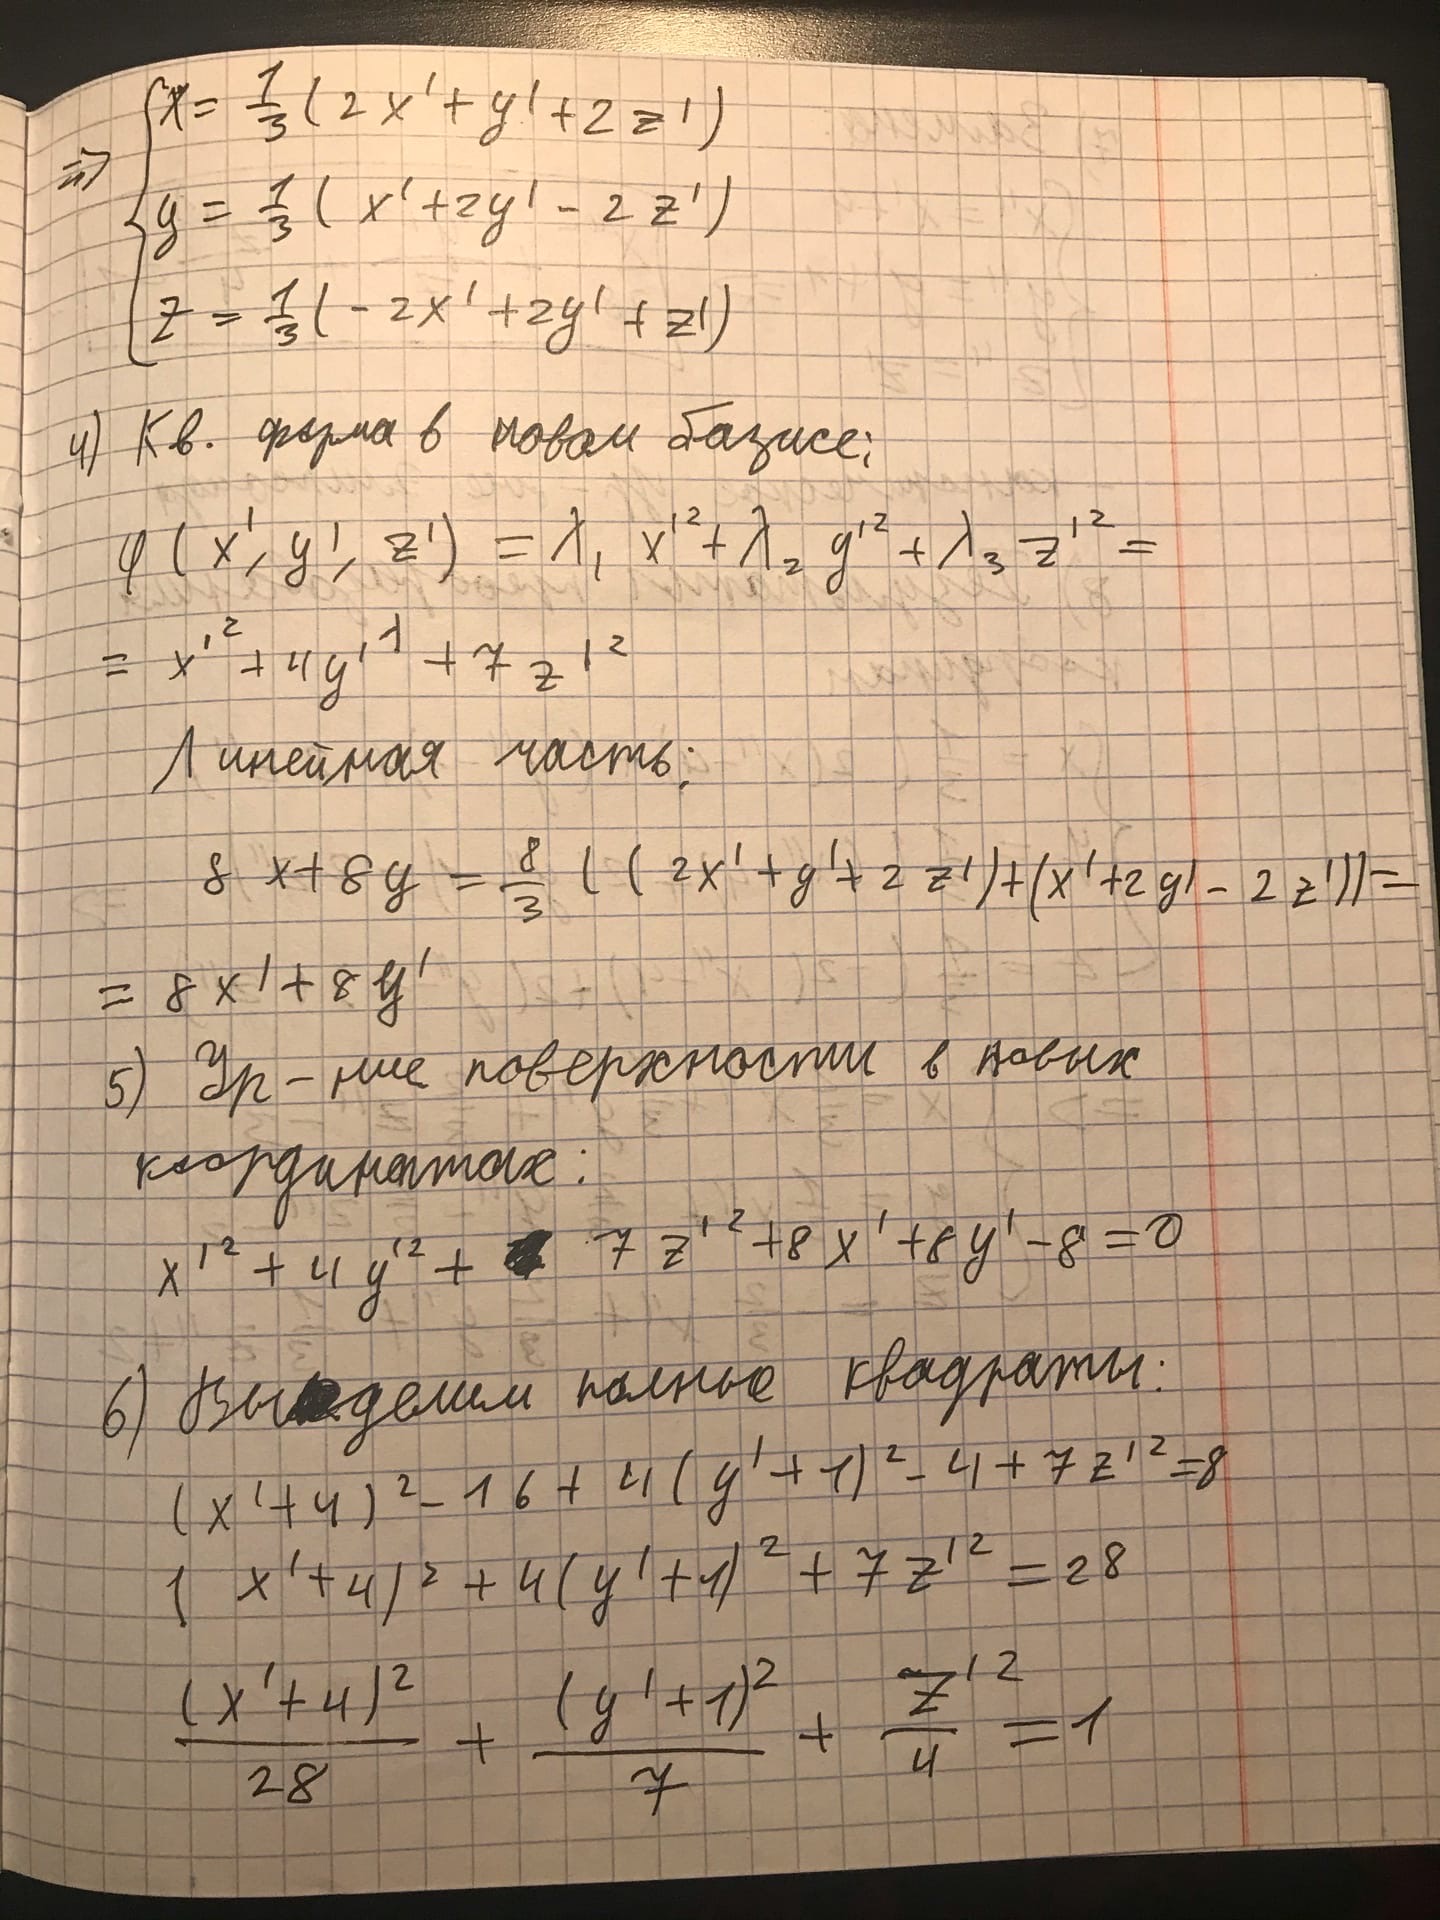 ⇒ { x = 1/3 (2x' + y' + 2z')
y = 1/3 (x' + 2y' - 2z')
z = 1/3 (-2x' + 2y' + z')
4) Кв. форма в новом базисе:
φ(x', y', z') = λ₁ x'² + λ₂ y'² + λ₃ z'² =
= x'² + 4y'² + 7z'²
Линейная часть:
8x + 8y = 8/3 ((2x' + y' + 2z') + (x' + 2y' - 2z')) =
= 8x' + 8y'
5) Ур-ние поверхности в новых
координатах:
x'² + 4y'² + 7z'² + 8x' + 8y' - 8 = 0
6) Выделим полные квадраты:
(x' + 4)² - 16 + 4(y' + 1)² - 4 + 7z'² = 8
(x' + 4)² + 4(y' + 1)² + 7z'² = 28
(x' + 4)²/28 + (y' + 1)²/7 + z'²/4 = 1